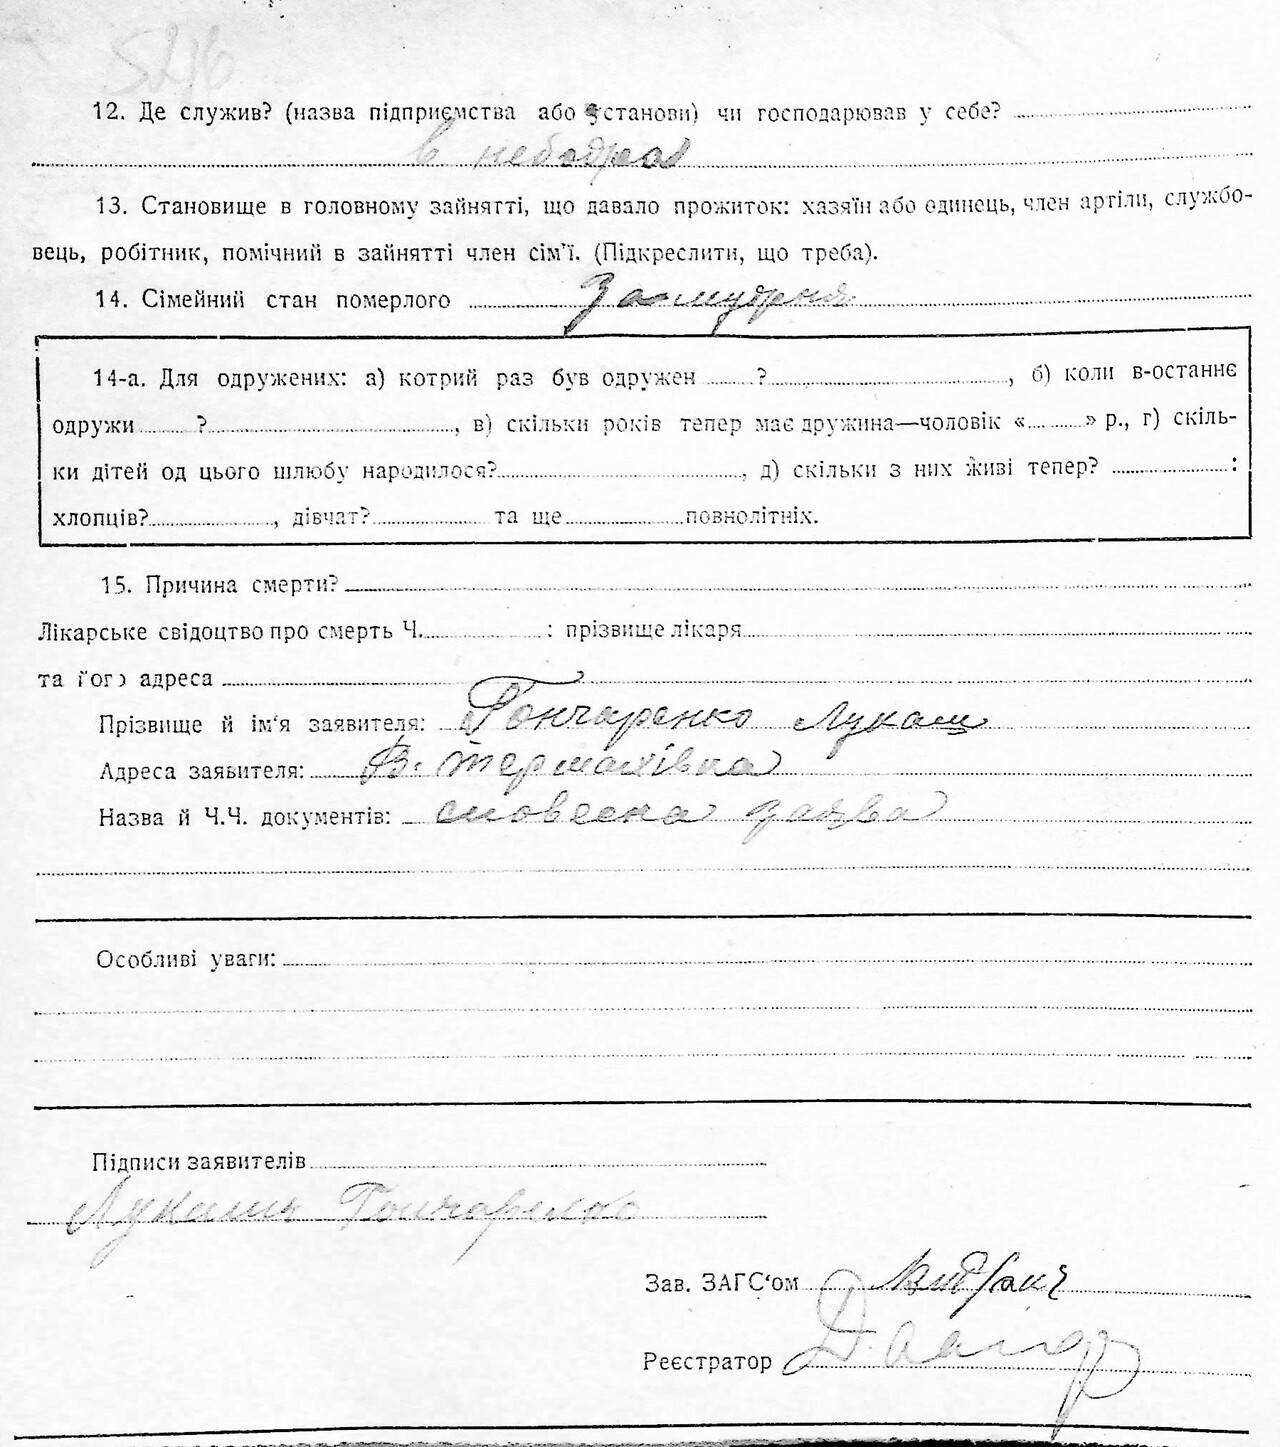 5216
12. Де служив? (назва підприємства або установи) чи господарював у себе?
в
13. Становище в головному зайнятті, що давало прожиток: хазяїн або одинець, член артіли, службо-
вець, робітник, помічний в зайнятті член сім'ї. (Підкреслити, що треба).
14. Сімейний стан померлого
14-а. Для одружених: а) котрий раз був одружен ? , б) коли в-останнє
одружи ? , в) скільки років тепер має дружина—чоловік « » р., г) скіль-
ки дітей од цього шлюбу народилося? , д) скільки з них живі тепер? :
хлопців? , дівчат? та ще повнолітніх.
15. Причина смерти?
Лікарське свідоцтво про смерть Ч. : прізвище лікаря
та його адреса
Прізвище й ім'я заявителя: Гончаренко Лукаш
Адреса заявителя: В. Термахівка
Назва й Ч.Ч. документів: словесна заява
Особливі уваги:
Підписи заявителів
Лукаш Гончаренко
Зав. ЗАГС'ом
Реєстратор